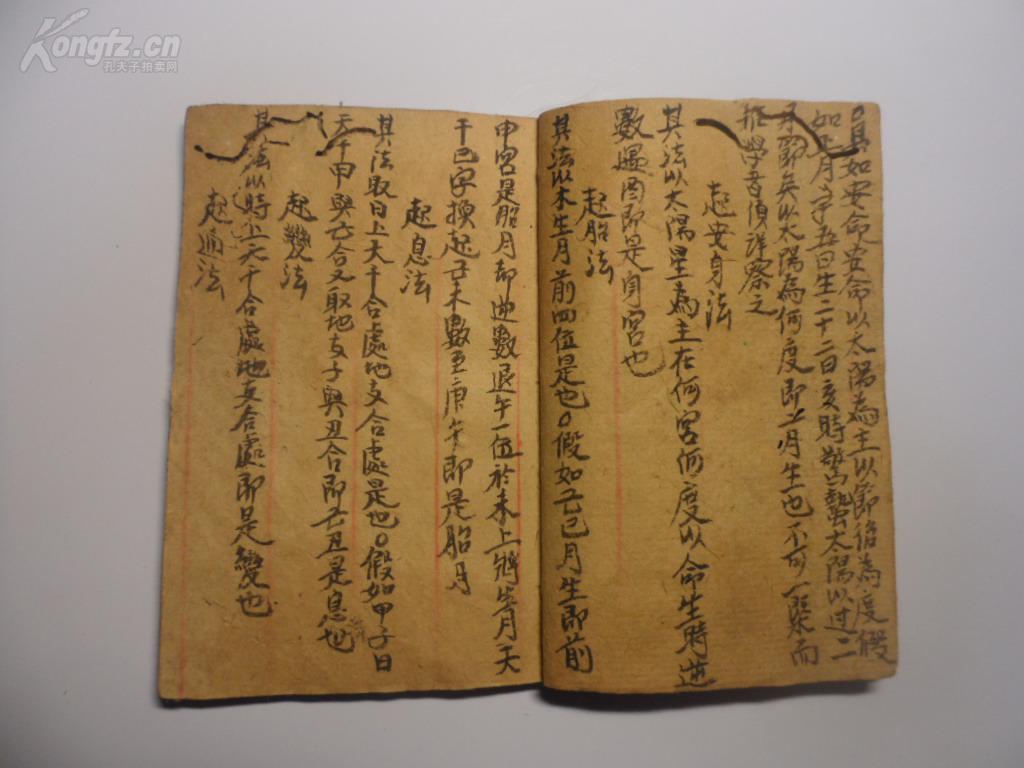 Kongfz.cn
孔夫子拍卖网
真如安命安命以太陽為主以節俗為度假
如正月字五日生二十二日亥時驚蟄太陽以过二
月節矣以太陽為何度即二月生也不可一槩而
推學者須詳察之
起安身法
其法以太陽星為主在何宮何度以命生時逆
數遇酉即是身宮也
起胎法
其法以本生月前四位是也假如己巳月生即前
申宮是胎月却逆數退午一位於未上將生月天
干己字換起己未數至庚午即是胎月
起息法
其法取日上天干合處地支合處是也假如甲子日
天干甲與己合又取地支子與丑合即己丑是息也
起變法
其法以時上天干合處地支合處即是變也
起通法